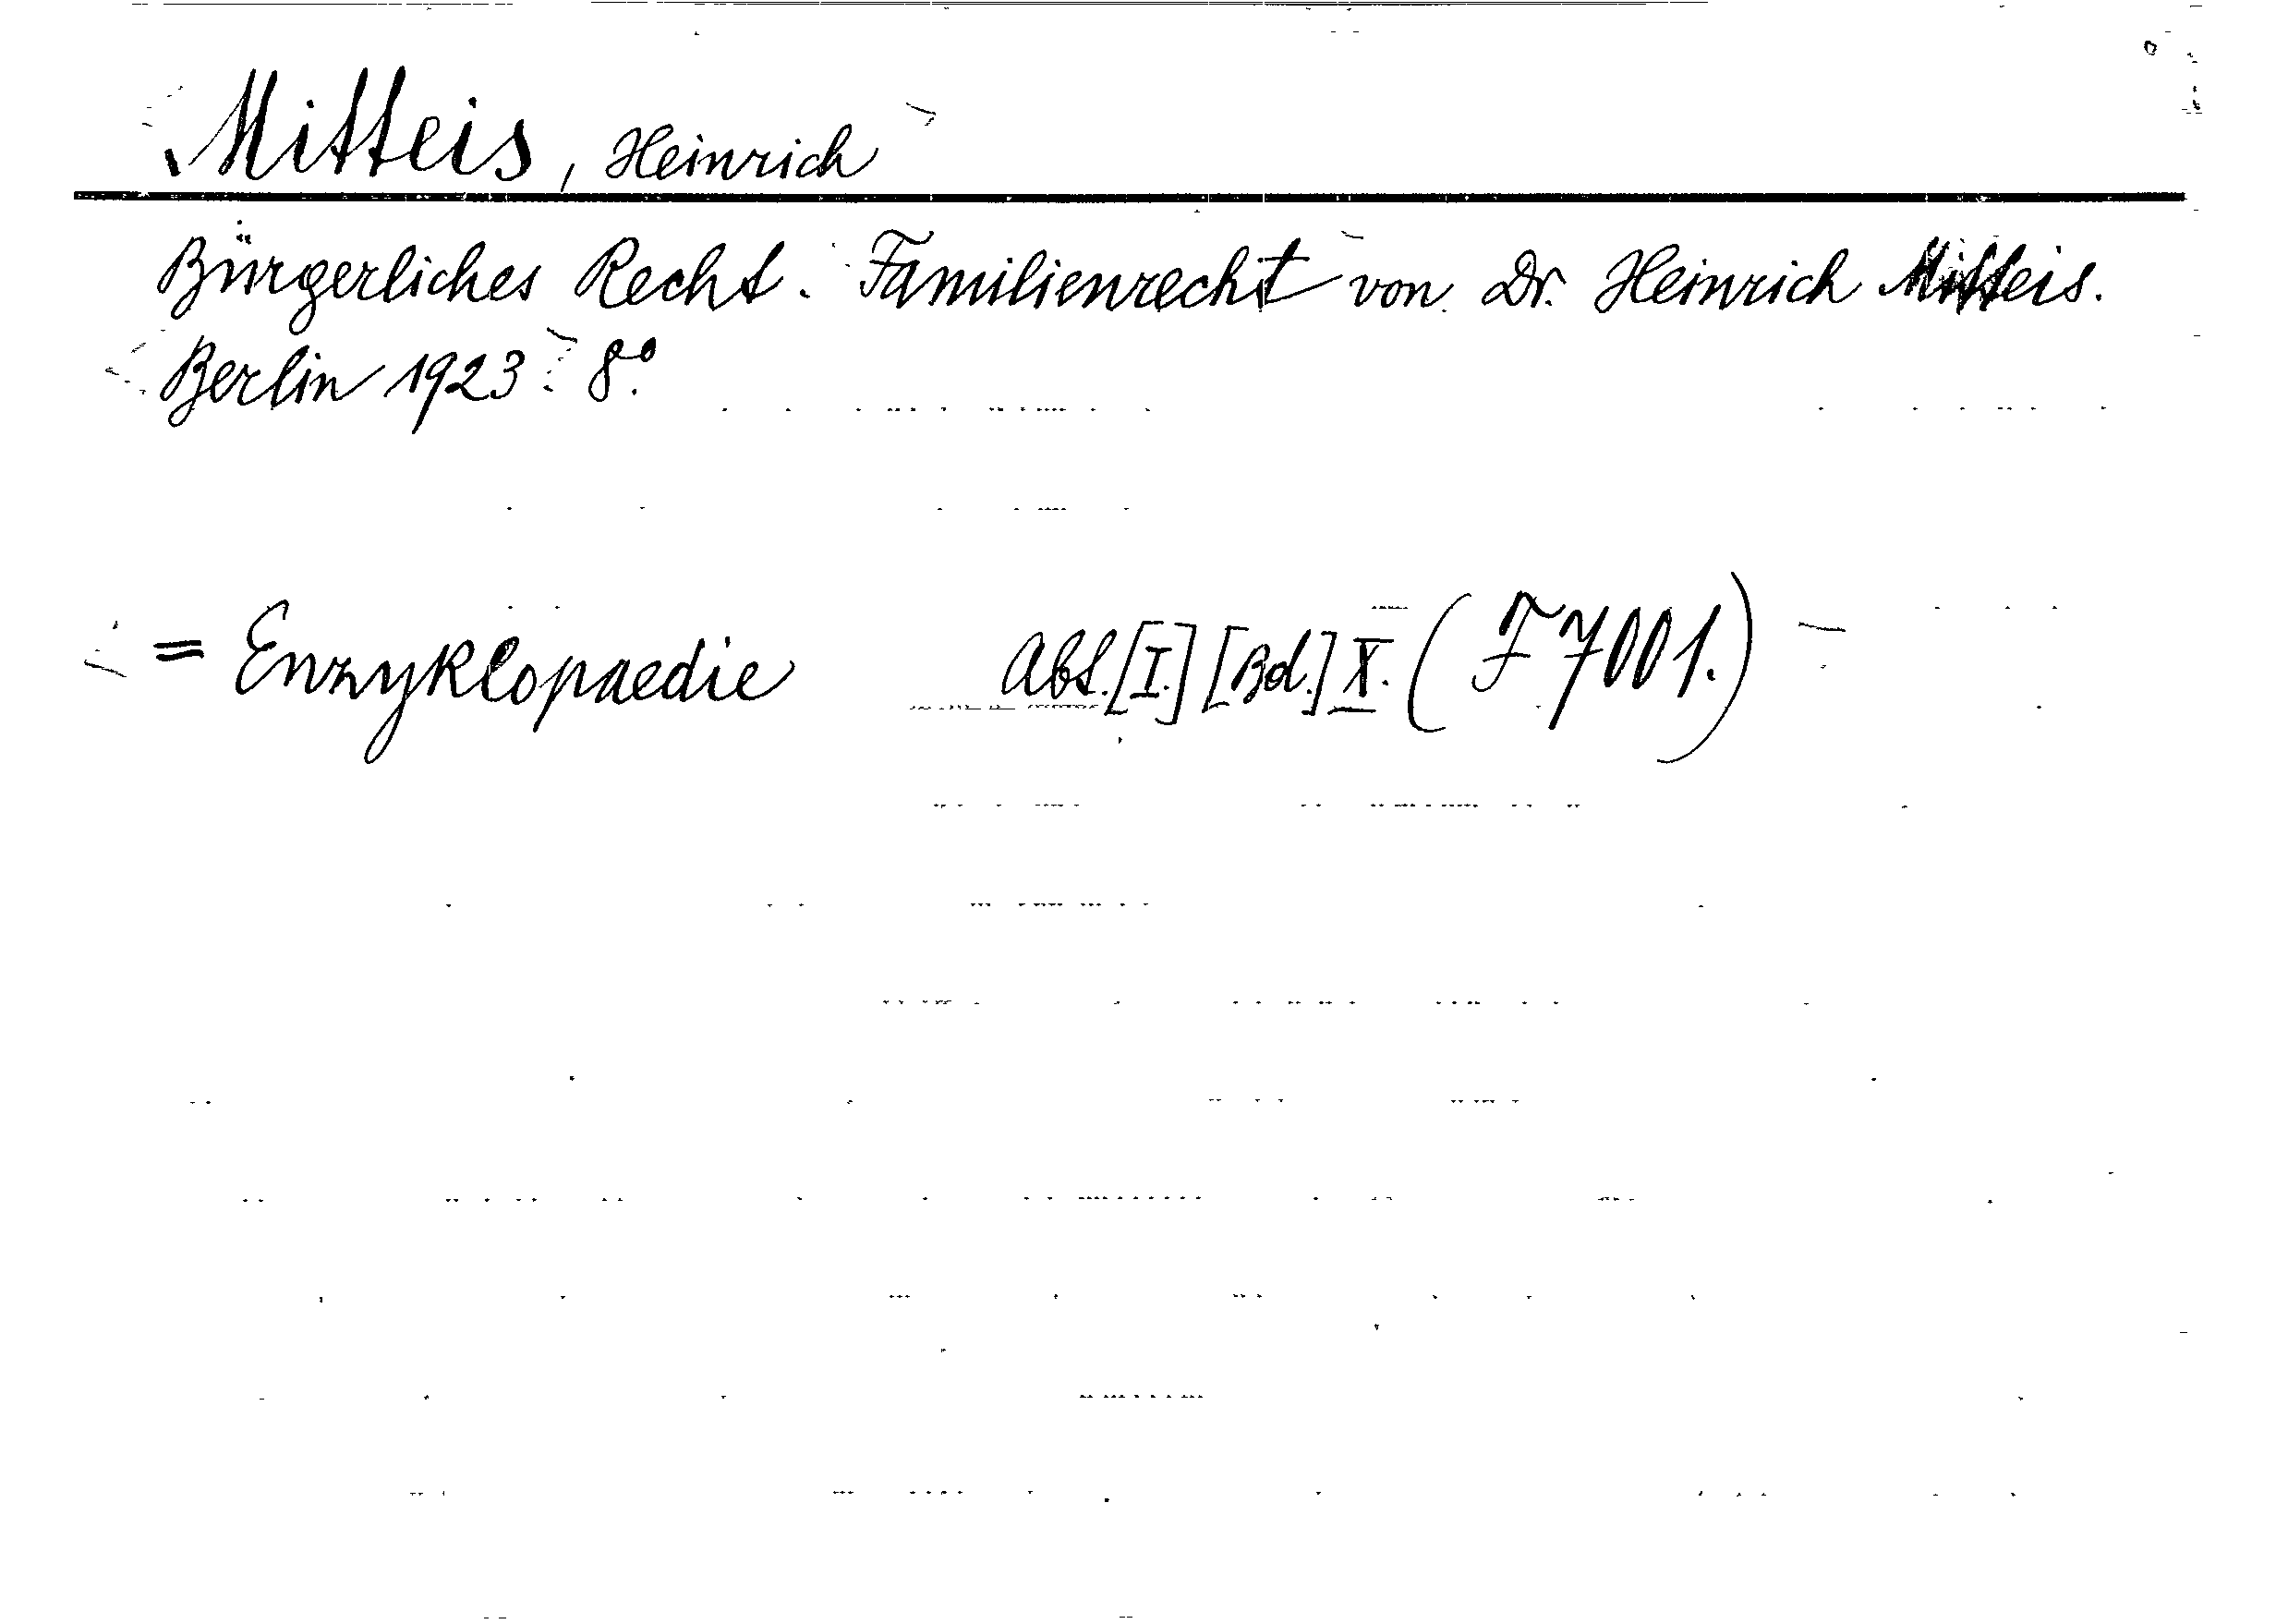 Mitteis, Heinrich
Bürgerliches Recht. Familienrecht von Dr. Heinrich Mitteis.
Berlin 1923. 8°.
= Enzyklopaedie Abt. [I.] [Bd.] X. (F 7001.)